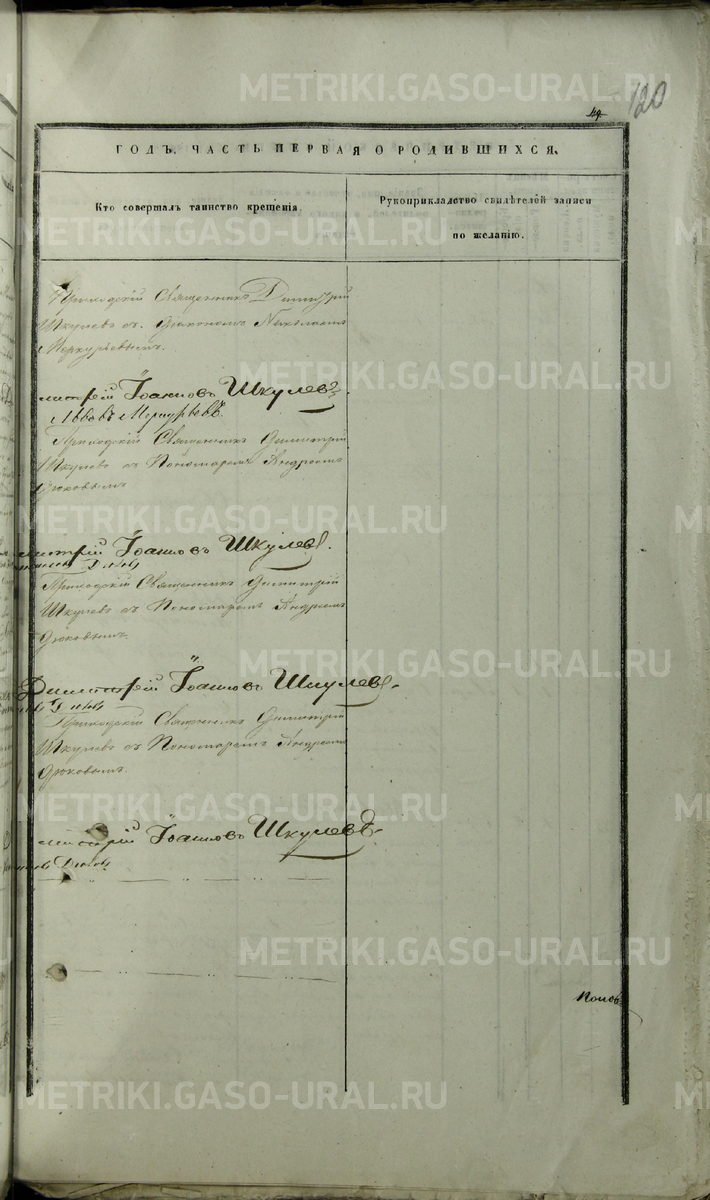 METRIKI.GASO-URAL.RU
120
ГОДЪ. ЧАСТЬ ПЕРВАЯ О РОДИВШИХСЯ.
Кто совершалъ таинство крещенія.
Рукоприкладство свидѣтелей записи
по желанію.
Приходскій Священникъ Димитрій
Шкулевъ съ
Меркурьевымъ.
митрій Іоанновъ Шкулевъ
Меркурьевъ.
Приходскій Священникъ Димитрій
Шкулевъ съ Пономаремъ Андреемъ
Дюковымъ
митрій Іоанновъ Шкулевъ.
Дюковъ
Приходскій Священникъ Димитрій
Шкулевъ съ Пономаремъ Андреемъ
Дюковымъ.
Димитрій Іоанновъ Шкулевъ.
Дюковъ
Приходскій Священникъ Димитрій
Шкулевъ съ Пономаремъ Андреемъ
Дюковымъ.
митрій Іоанновъ Шкулевъ.
Дюковъ
Поповъ